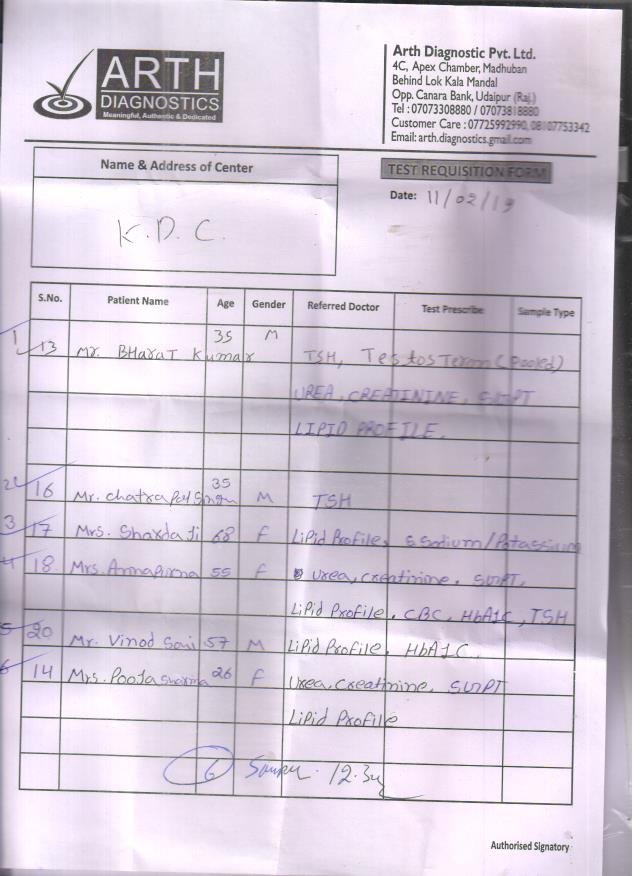 ARTH
DIAGNOSTICS
Meaningful, Authentic & Dedicated
Arth Diagnostic Pvt. Ltd.
4C, Apex Chamber, Madhuban
Behind Lok Kala Mandal
Opp. Canara Bank, Udaipur (Raj.)
Tel : 07073308880 / 07073818880
Customer Care : 07725992990, 08107753342
Email: arth.diagnostics.gmail.com
Name & Address of Center
TEST REQUISITION FORM
Date: 11/02/19
K.D.C.
S.No. Patient Name Age Gender Referred Doctor Test Prescribe Sample Type
1 13 Mr. BHaraT Kumar 35 M TSH, TestosTerom (Pooled)
UREA, CREATININE, SGPT
LIPID PROFILE.
2 16 Mr. chatrapal Singh 35 M TSH
3 17 Mrs. Sharda Ji 68 F Lipid Profile, S Sodium/Potassium
4 18. Mrs. Annapurna 55 F urea, creatinine, SGPT,
Lipid Profile, CBC, HbA1C, TSH
5 20 Mr. Vinod Soni 57 M Lipid Profile, HbA1C.
6 14 Mrs. Pooja Sharma 26 F Urea, Creatinine, SGPT
Lipid Profile
6
Authorised Signatory